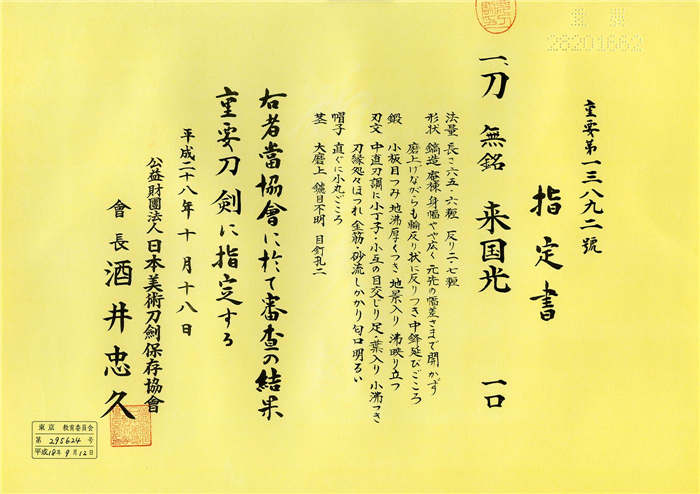 重要第一三八九二號
指定書
一、刀 無銘 来国光 一口
法量 長さ六五・六糎 反り二・七糎
形状 鎬造 庵棟 身幅やや広く 元先の幅差さまで開かず
磨上げながらも輪反り状に反りつき 中鋒延びごころ
鍛 小板目つみ 地沸厚くつき 地景入り 沸映り立つ
刃文 中直刃調に小丁子・小互の目交じり 足・葉入り 小沸つき
刃縁処々ほつれ 金筋・砂流しかかり 匂口明るい
帽子 直ぐに小丸ごころ
茎 大磨上 鑢目不明 目釘孔二
右者當協會に於て審査の結果
重要刀剣に指定する
平成二十八年十月十八日
公益財團法人日本美術刀劍保存協會
會長 酒井忠久
東京 教育委員会
第 295624 号
平成18年9月12日
28201662